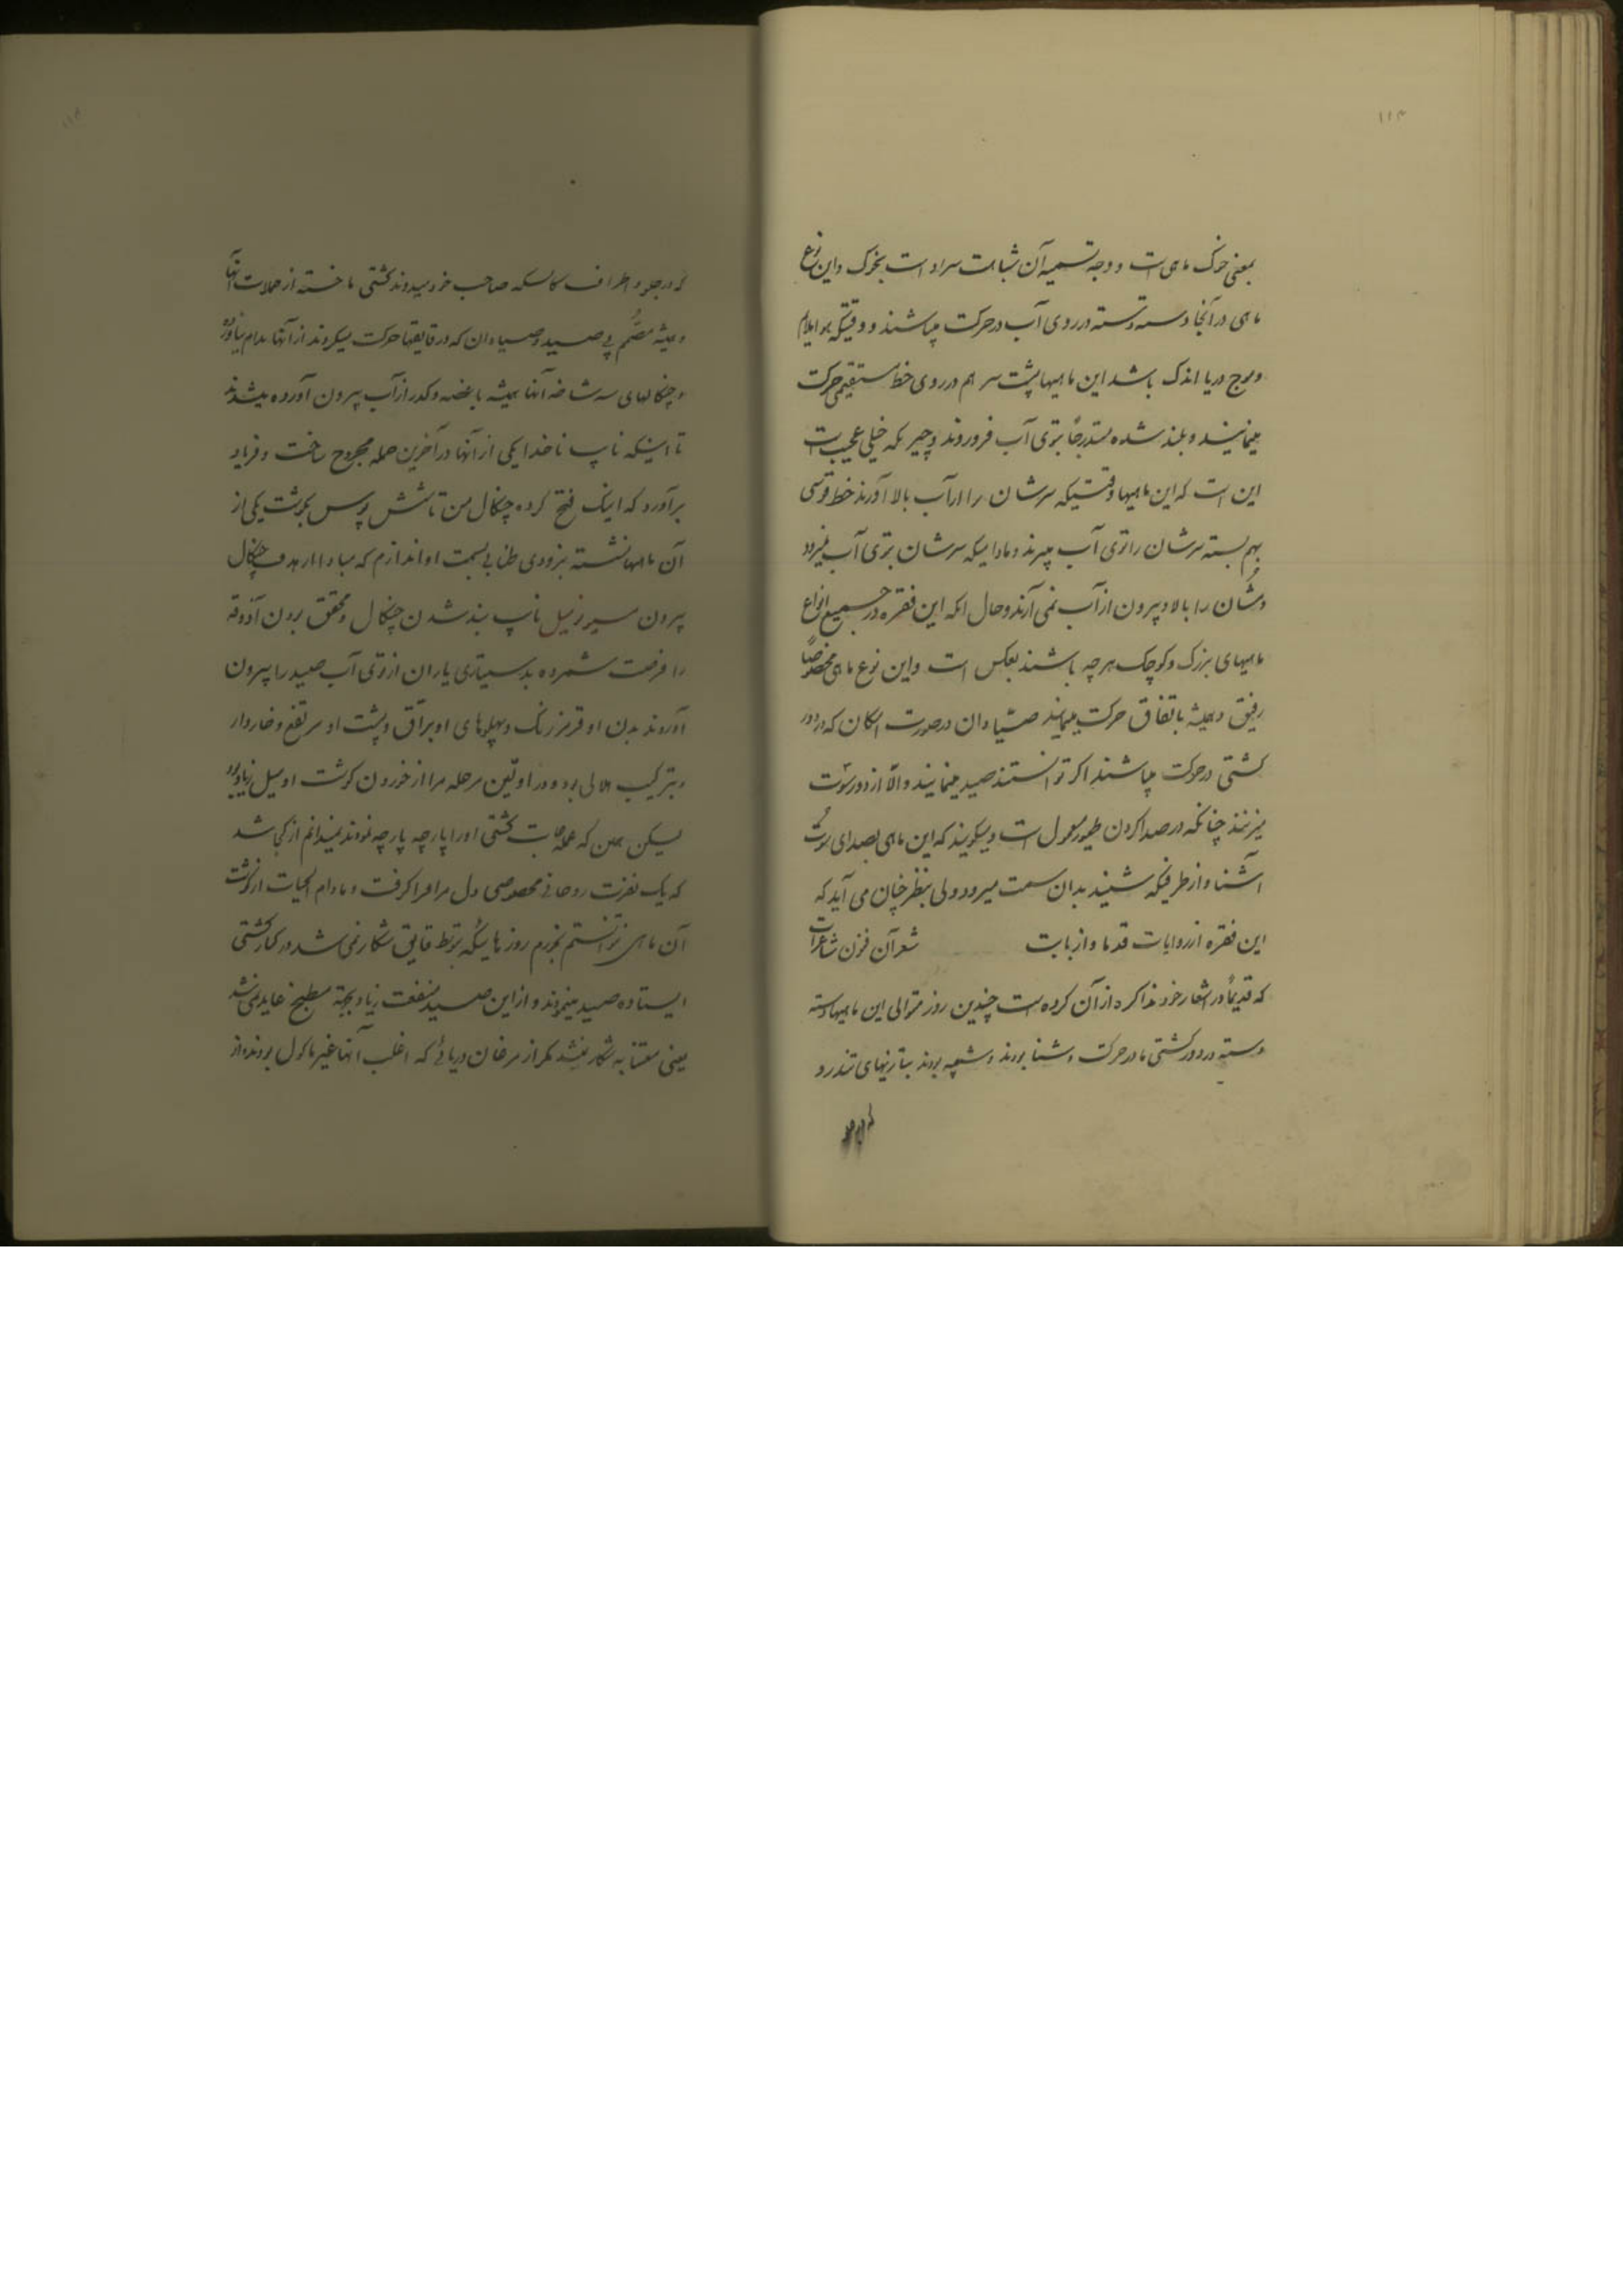 ۱۱۳
بمعنی خوک ماهی است و وجه تسمیه آن شباهت سر او است بخوک و این نوع
ماهی در آنجا دسته دسته در روی آب در حرکت میباشند و وقتیکه هوا ملایم
و موج دریا اندک باشد این ماهیها پشت سر هم در روی خط مستقیمی حرکت
مینمایند و بلند شده بتدریجاً بتوی آب فرو روند و چیزیکه خیلی عجیب است
این است که این ماهیها وقتیکه سرشان را از آب بالا آورند خط قوسی
بهم بسته سرشان را توی آب میبرند و مادامیکه سرشان بتوی آب نمیرود
دمشان را بالا و بیرون از آب نمی آرند و حال آنکه این فقره در جمیع انواع
ماهیهای بزرگ و کوچک هر چه باشند بعکس است و این نوع ماهی مخصوصاً
رفیق و همیشه باتفاق حرکت مینمایند صیّادان در صورت امکان که در دور
کشتی در حرکت میباشند اگر توانستند صید مینمایند و الّا از دور سوت
میزنند چنانکه در صدا کردن طیور معمول است و میگویند که این ماهی بصدای سوت
آشنا و از طرفیکه شنید بدان سمت میرود ولی بنظر چنان می آید که
این فقره از روایات قدما و از بابت شعر آن فزن شاعر است
که قدیماً در اشعار خود مذاکره از آن کرده است چندین روز متوالی این ماهیها دسته
دسته در دور کشتی ما در حرکت و شنا بودند و شبیه بودند بتازیهای تندرو
که در جلو و اطراف کالسکه صاحب خود میدوند کشتی ما خسته از حملات آنها
و همیشه مصمّم بی صید و صیادان که در قایقها حرکت میکردند از آنها بدام نیاورده
و چنگالهای سه شاخه آنها همیشه با غصه و کدر از آب بیرون آورده میشدند
تا اینکه نایب ناخدا یکی از آنها در آخرین حمله مجروح ساخت و فریاد
برآورد که اینک فتح کرده چنگال من تا شش پوس بگوشت یکی از
آن ماهیها نشسته بزودی طنابی بسمت او اندازم که مبادا از هدف چنگال
بیرون سیو زبیل نایب بند شدن چنگال و محقق بودن آذوقه
را فرصت شمرده بدستیاری یاران از توی آب صید را بیرون
آوردند بدن او قرمز رنگ و پهلوهای او براق و پشت او مرتفع و خاردار
و بترکیب هلالی بود و در اولین مرحله مرا از خوردن گوشت او میل زیاد بود
لیکن همین که عملجات کشتی او را پارچه پارچه نمودند نمیدانم از کجا شد
که یک نفرت روحانی مخصوصی دل مرا فرا گرفت و مادام الحیات از گوشت
آن ماهی نتوانستم بخورم روزهائیکه بتوسط قایق شکار نمی شد در کنار کشتی
ایستاده صید مینمودند و از این صید منفعت زیاد بجهة مطبخ عاید نمی شد
یعنی معتنا به شکار نشد مگر از مرغان دریائی که اغلب آنها غیر ماکول بودند و از